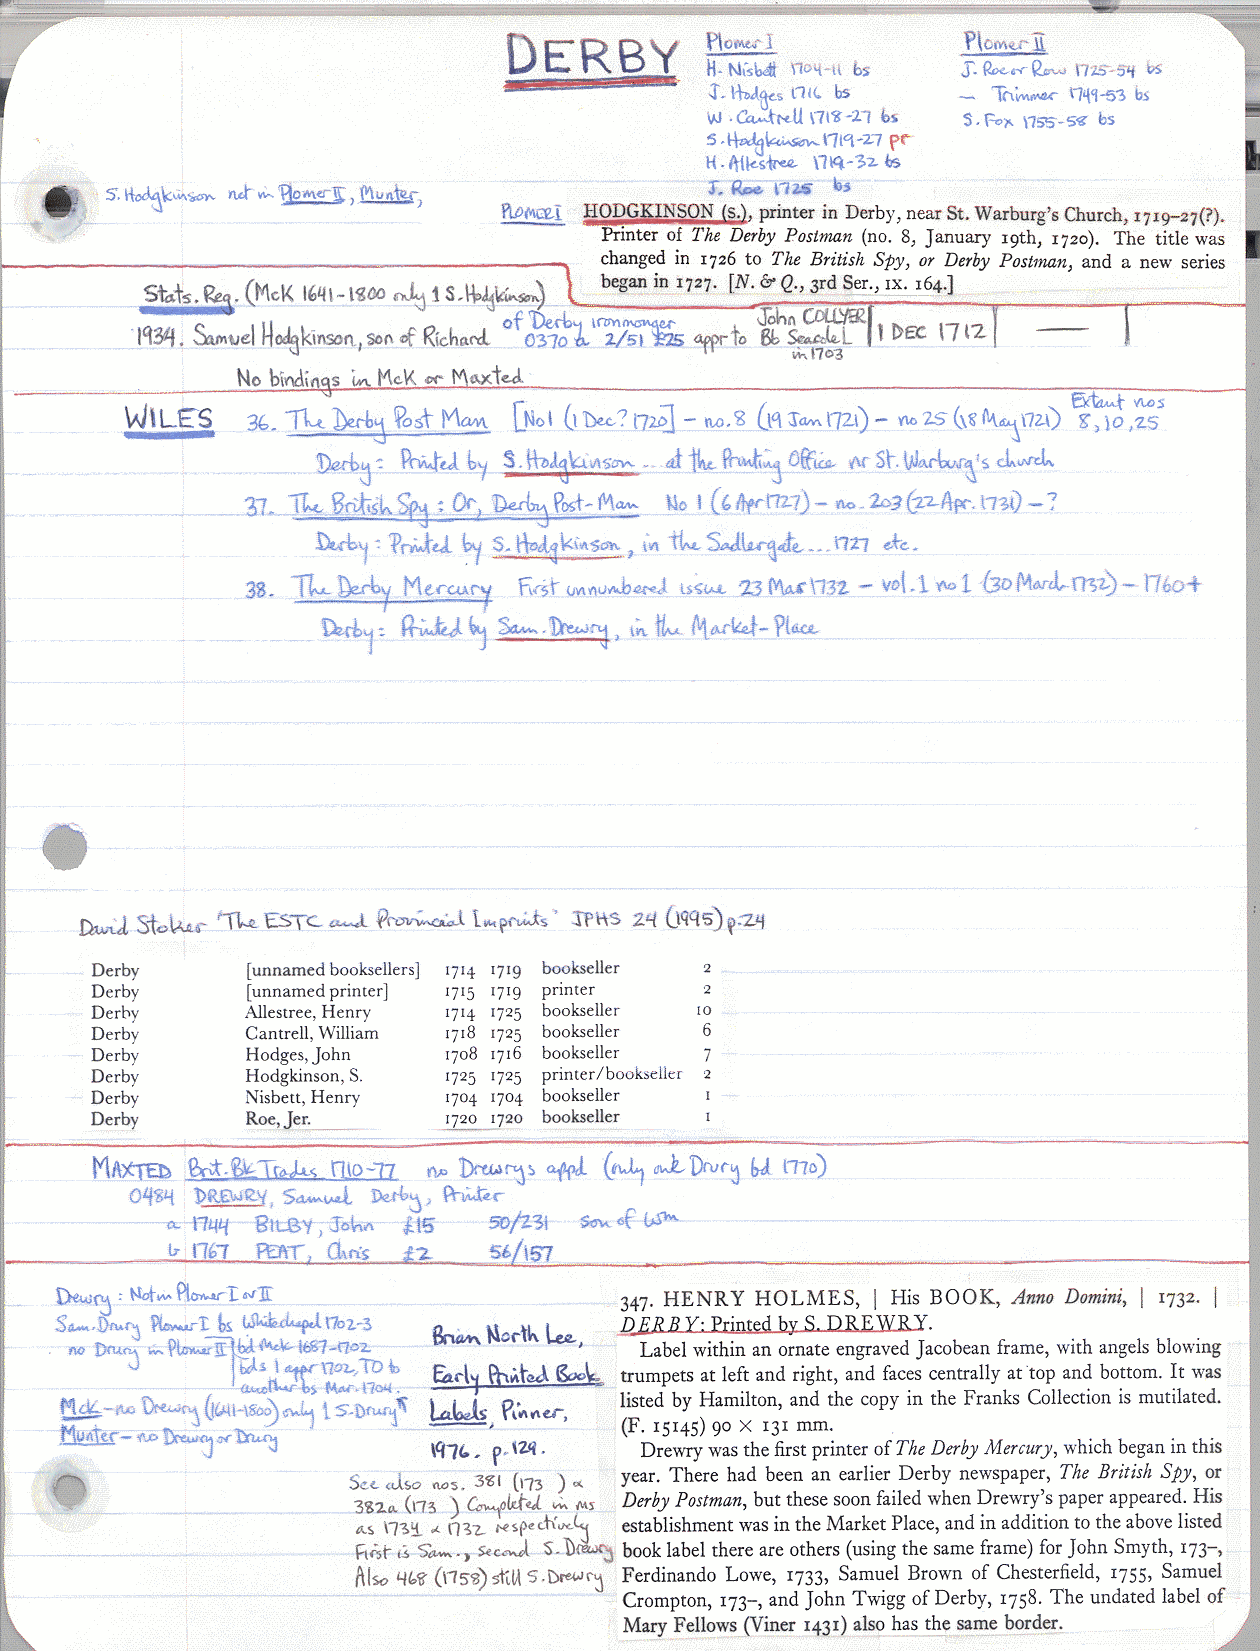 DERBY
Plomer I
H. Nisbett 1704-11 bs
J. Hodges 1716 bs
W. Cantrell 1718-27 bs
S. Hodgkinson 1719-27 pr
H. Allestree 1719-32 bs
J. Roe 1725 bs
Plomer II
J. Roe or Row 1725-54 bs
— Trimmer 1749-53 bs
S. Fox 1755-58 bs
S. Hodgkinson not in Plomer II, Munter,
PLOMER I
HODGKINSON (S.), printer in Derby, near St. Warburg's Church, 1719-27(?).
Printer of The Derby Postman (no. 8, January 19th, 1720). The title was
changed in 1726 to The British Spy, or Derby Postman, and a new series
began in 1727. [N. & Q., 3rd Ser., IX. 164.]
Stats. Reg. (McK 1641-1800 only 1 S. Hodgkinson)
1934. Samuel Hodgkinson, son of Richard of Derby ironmonger appr to John COLLYER | 1 DEC 1712 | — |
0370 a 2/51 £25
Bb Seacole L
in 1703
No bindings in McK or Maxted
WILES 36. The Derby Post Man [No 1 (1 Dec? 1720] – no. 8 (19 Jan 1721) – no 25 (18 May 1721) Extant nos
8, 10, 25
Derby: Printed by S. Hodgkinson ... at the Printing Office nr St. Warburg's church
37. The British Spy: Or, Derby Post-Man No 1 (6 Apr 1727) – no. 203 (22 Apr. 1731) – ?
Derby: Printed by S. Hodgkinson, in the Sadlergate ... 1727 etc.
38. The Derby Mercury First unnumbered issue 23 Mar 1732 – vol. 1 no 1 (30 March 1732) – 1760+
Derby: Printed by Sam. Drewry, in the Market-Place
David Stoker 'The ESTC and Provincial Imprints' JPHS 24 (1995) p. 24
Derby [unnamed booksellers] 1714 1719 bookseller 2
Derby [unnamed printer] 1715 1719 printer 2
Derby Allestree, Henry 1714 1725 bookseller 10
Derby Cantrell, William 1718 1725 bookseller 6
Derby Hodges, John 1708 1716 bookseller 7
Derby Hodgkinson, S. 1725 1725 printer/bookseller 2
Derby Nisbett, Henry 1704 1704 bookseller 1
Derby Roe, Jer. 1720 1720 bookseller 1
MAXTED Brit. Bk Trades 1710-77 no Drewrys appd (only one Drury bd 1770)
0484 DREWRY, Samuel Derby, Printer
a 1744 BILBY, John £15 50/231 son of Wm
b 1767 PEAT, Chris £2 56/157
Drewry: Not in Plomer I or II
Sam. Drury Plomer I bs Whitechapel 1702-3
no Drury in Plomer II
bd McK 1687-1702
bds 1 appr 1702, TO b
another bs Mar. 1704.
McK – no Drewry (1641-1800) only 1 S. Drury
Munter – no Drewry or Drury
Brian North Lee,
Early Printed Book
Labels, Pinner,
1976. p. 129.
See also nos. 381 (173 ) &
382a (173 ) Completed in ms
as 1734 & 1732 respectively
First is Sam., second S. Drewry
Also 468 (1758) still S. Drewry
347. HENRY HOLMES, | His BOOK, Anno Domini, | 1732. |
DERBY: Printed by S. DREWRY.
Label within an ornate engraved Jacobean frame, with angels blowing
trumpets at left and right, and faces centrally at top and bottom. It was
listed by Hamilton, and the copy in the Franks Collection is mutilated.
(F. 15145) 90 × 131 mm.
Drewry was the first printer of The Derby Mercury, which began in this
year. There had been an earlier Derby newspaper, The British Spy, or
Derby Postman, but these soon failed when Drewry's paper appeared. His
establishment was in the Market Place, and in addition to the above listed
book label there are others (using the same frame) for John Smyth, 173–,
Ferdinando Lowe, 1733, Samuel Brown of Chesterfield, 1755, Samuel
Crompton, 173–, and John Twigg of Derby, 1758. The undated label of
Mary Fellows (Viner 1431) also has the same border.